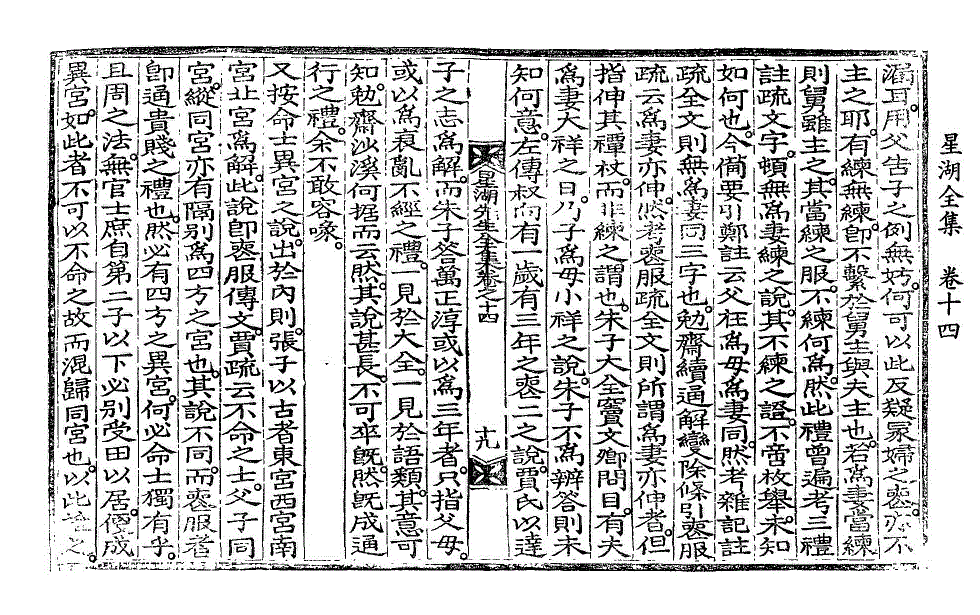 星湖全集 卷十四
漏耳。用父告子之例無妨。何可以此反疑冢婦之喪亦不
主之耶。有練無練。卽不繫於舅主與夫主也。若爲妻當練
則舅雖主之。其當練之服。不練何爲。然此禮曾遍考三禮
註疏文字。頓無爲妻練之說。其不練之證。不啻枚擧。未知
如何也。今備要引鄭註云父在爲母爲妻同。然考雜記註
疏全文則無爲妻同三字也。勉齋續通解變除條引喪服
疏云爲妻亦伸。然考喪服疏全文則所謂爲妻亦伸者。但
指伸其禫杖。而非練之謂也。朱子大全竇文卿問目。有夫
爲妻大祥之日。乃子爲母小祥之說。朱子不爲辨答則未
知何意。左傳叔向有一歲有三年之喪二之說。賈氏以達
星湖先生全集卷之十四 十九
子之志爲解。而朱子答萬正淳或以爲三年者。只指父母。
或以爲衰亂不經之禮。一見於大全。一見於語類。其意可
知。勉齋沙溪何据而云然。其說甚長。不可卒旣。然旣成通
行之禮。余不敢容喙。
又按命士異宮之說。出於內則。張子以古者東宮西宮南
宮北宮爲解。此說卽喪服傳文。賈疏云不命之士。父子同
宮。縱同宮亦有隔別爲四方之宮也。其說不同。而喪服者
卽通貴賤之禮也。然必有四方之異宮。何必命士獨有乎。
且周之法。無官士庶自第二子以下必別受田以居。便成
異宮。如此者不可以不命之故而混歸同宮也。以此證之。